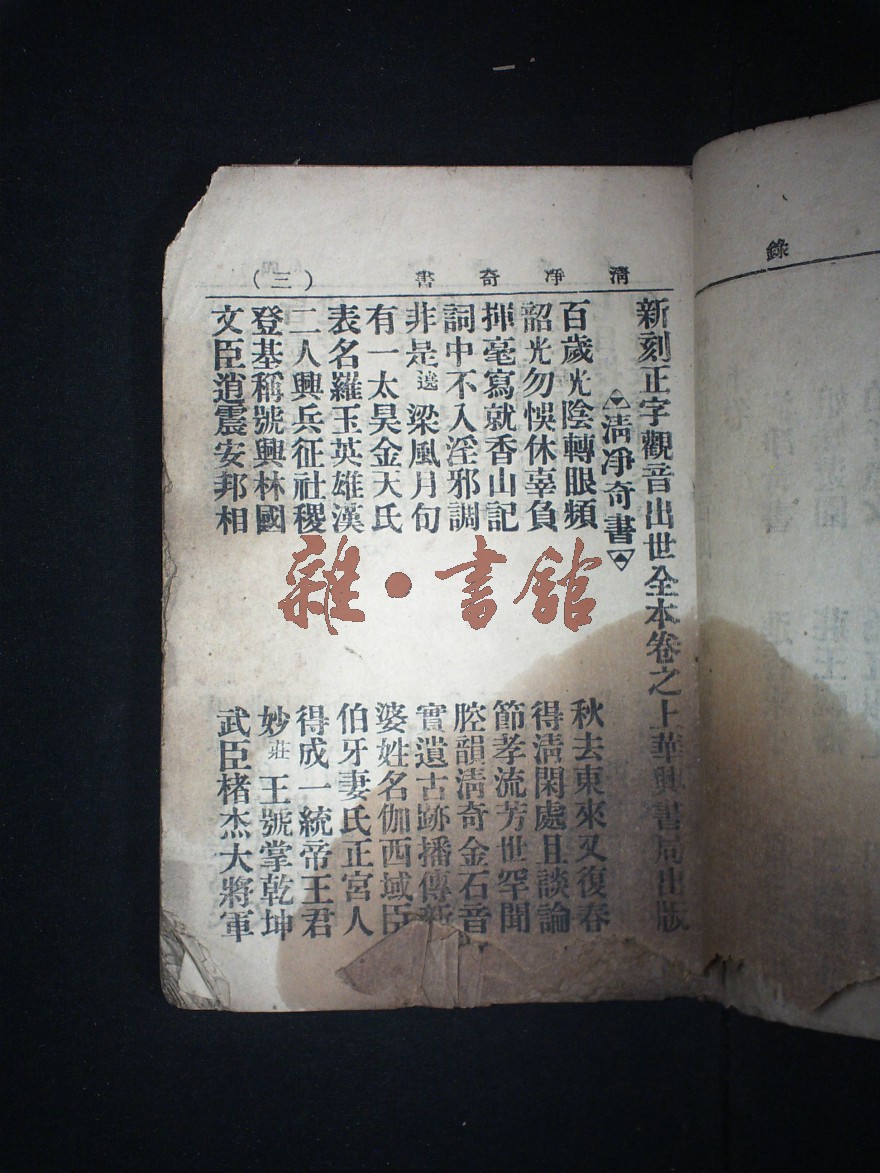 錄
清淨奇書 (三)
新刻正字觀音出世全本卷之上華興書局出版
清淨奇書
百歲光陰轉眼頻 秋去東來又復春
韶光勿悞休辜負 得清閑處且談論
揮毫寫就香山記 節孝流芳世罕聞
詞中不入淫邪調 腔韻清奇金石音
非是 梁風月句 實遺古跡播傳新
有一太昊金天氏 婆姓名伽西域臣
表名羅玉英雄漢 伯牙妻氏正宮人
二人興兵征社稷 得成一統帝王君
登基稱號興林國 妙莊王號掌乾坤
文臣逍震安邦相 武臣楮杰大將軍
雜·書館